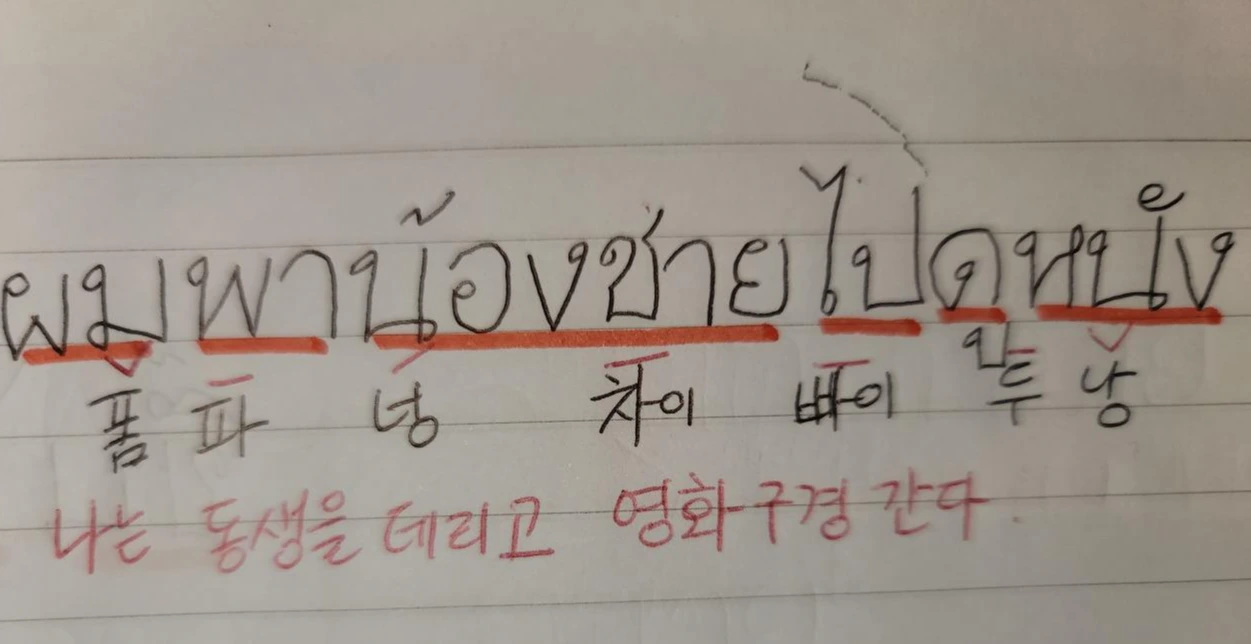 ผมพาน้องชายไปดูหนัง
폼 파 넝 차이 빠이 두 낭
나는 동생을 데리고 영화구경 간다.